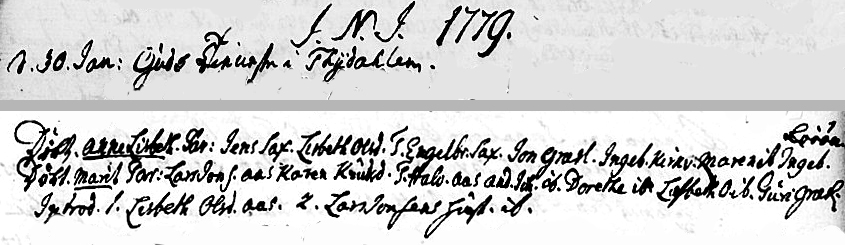 J. N. J. 1779.
d. 30. Jan: Guds Tieniste i Thydahlem.
Løvøen
Døbt. Anne Lisbeth. Par: Jens Sax. Lisbeth Olsd. T. Engelbr. Sax. Jon Græsl. Ingeb. Kirkv: Marenit Ingeb.
Døbt. Marit Par: Lars Jons. aas Karen Knudsd. T. Halv. aas And. ib. Dorethe ib. Lisbeth O. ib. Guri Græsl.
Introd. 1. Lisbeth Olsd. aas. 2. Lars Jonsens Hust. ib.